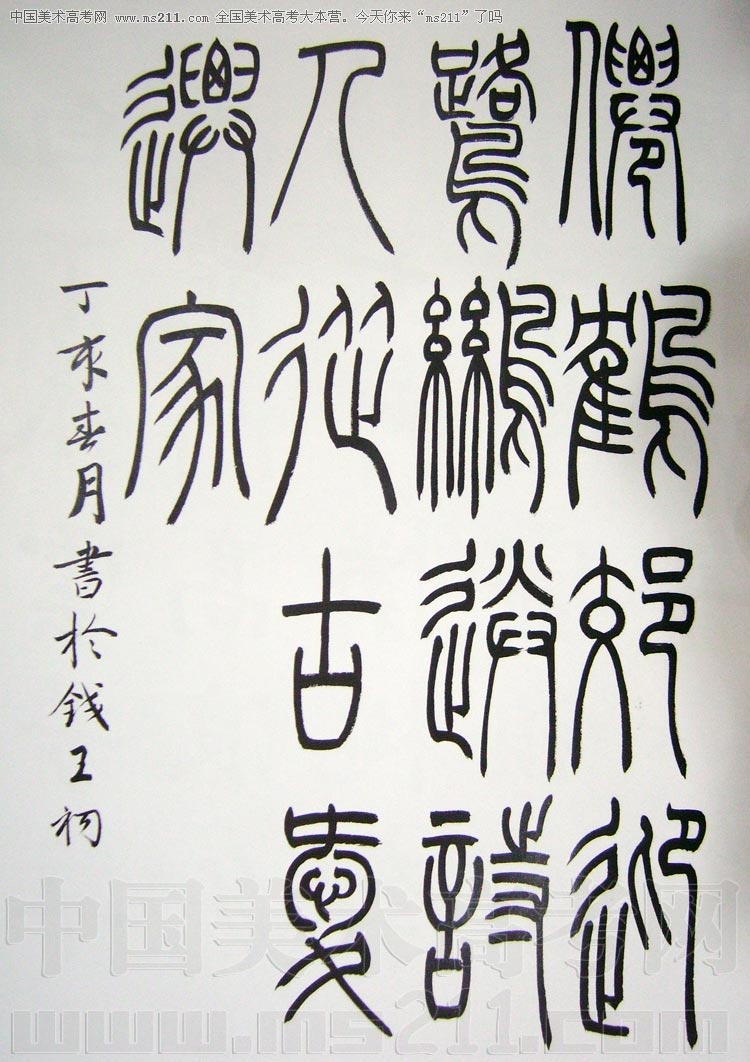 中国美术高考网 www.ms211.com 全国美术高考大本营。今天你来“ms211”了吗
僊鶴郊迎
鷺鷥送詩
人從古愛
遷家
丁亥春月書於錢王祠
中国美术高考网
www.ms211.com